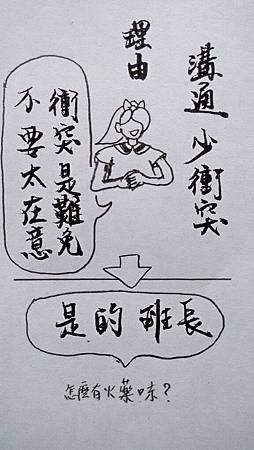 溝通少衝突
理由
衝突是難免
不要太在意
是的班長
怎麼有火藥味？